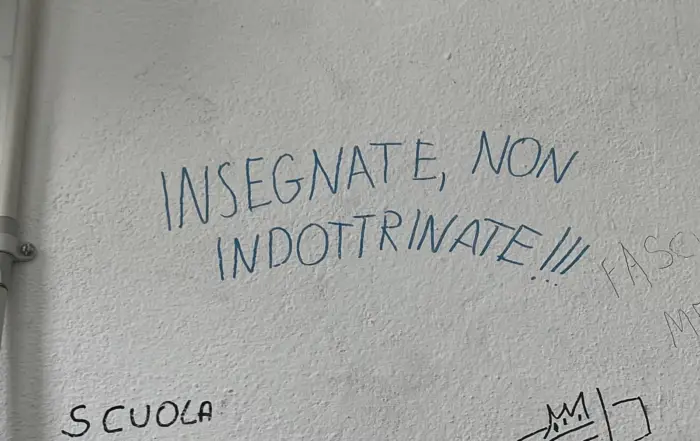 INSEGNATE, NON
INDOTTRINATE!!!
SCUOLA